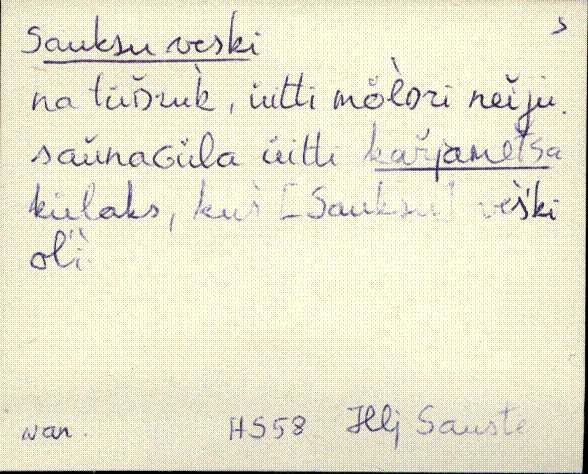 Sauksu veski s
na tüDruk, üitti möl̀Dri neiju.
saŭnaGüla üitti kaŕjametsa
külaks, kus [Sauksu] veški
oli.
nar. HS58 Hlj Sauste